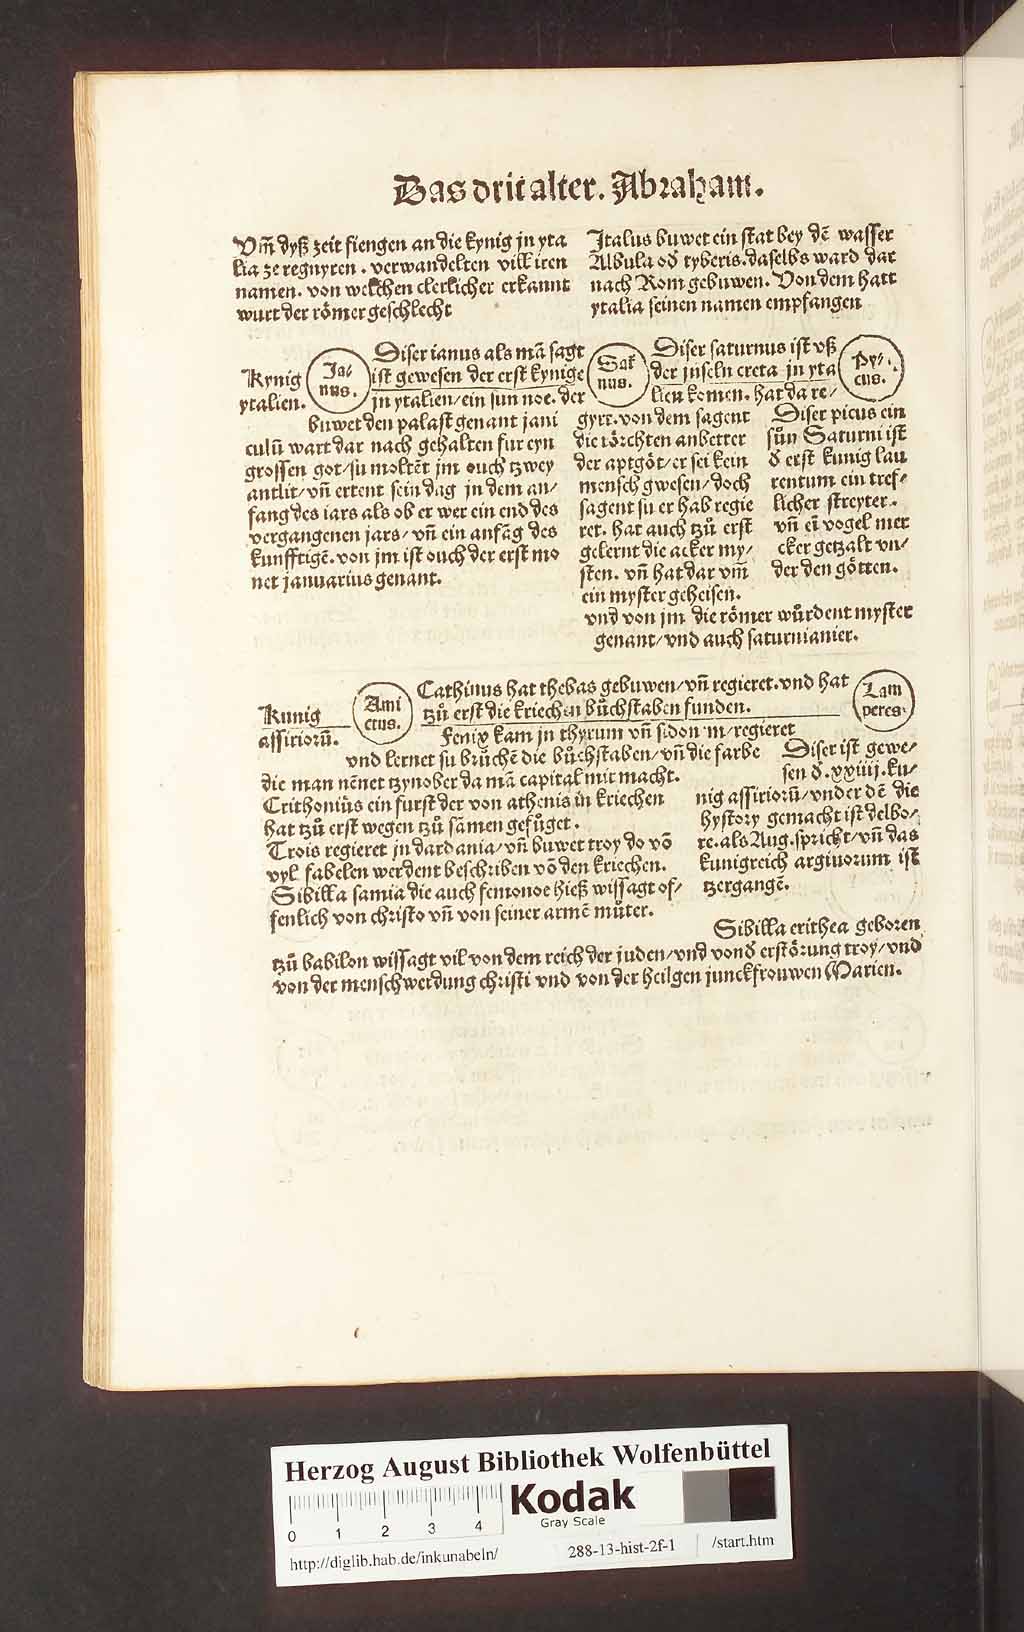 Das drit alter. Abraham.
Vm̄ dyß zeit fiengen an die kynig jn yta
lia ze regnyren. verwandelten vill iren
namen. von welchen clerlicher erkannt
wurt der römer geschlecht
Italus buwet ein stat bey dē wasser
Albula od tyberis. daselbs ward dar
nach Rom gebuwen. Von dem hatt
ytalia seinen namen empfangen
Kynig
ytalien.
Ja
nus.
Diser ianus als mā sagt
ist gewesen der erst kynige
jn ytalien/ ein sun noe. der
buwet den palast genant jani
culū wart dar nach gehalten fur eyn
grossen got/ su moltēt jm ouch tzwey
antlit/ vn̄ ertent sein dag jn dem an/
fang des iars als ob er wer ein end des
vergangenen jars/ vn̄ ein anfāg des
kunfftigē. von jm ist ouch der erst mo
net januarius genant.
Sat
nus.
Diser saturnus ist vß
der jnseln creta jn yta
lien komen. hat da re/
gyrt. von dem sagent
die törchten anbetter
der aptgöt/ er sei kein
mensch gwesen/ doch
sagent su er hab regie
ret. hat auch tzů erst
gelernt die acker my/
sten. vn̄ hat dar vm̄
ein myster geheisen.
vnd von jm die römer wůrdent myster
genant/ vnd auch saturnianier.
Py/
cus.
Diser picus ein
sůn Saturni ist
d̄ erst kunig lau
rentum ein tref/
licher streyter.
vn̄ eī vogel mer
cker getzalt vn/
der den götten.
Kunig
assiriorū.
Ami
ctus.
Cathinus hat thebas gebuwen/ vn̄ regieret. vnd hat
tzů erst die kriechen bůchstaben funden.
Fenix kam jn thyrum vn̄ sidon m regieret
vnd lernet su bruchē die bůchstaben/ vn̄ die farbe
die man nēnet tzynober da mā capital mit macht.
Crithonius ein furst der von athenis in kriechen
hat tzů erst wegen tzů sāmen gefůget.
Trois regieret jn dardania/ vn̄ buwet troy do vō
vyl fabelen werdent beschriben vō den kriechen.
Sibilla samia die auch femonoe hieß wissagt of/
fenlich von christo vn̄ von seiner armē můter.
Lam
peres.
Diser ist gewe/
sen d̄. xxiiij. ku/
nig assiriorū/ vnder dē die
hystory gemacht ist delbo/
re. als Aug. spricht/ vn̄ das
kunigreich argiuorum ist
tzergangē.
Sibilla erithea geboren
tzů babilon wissagt vil von dem reich der juden/ vnd vond̄ erstörung troy/ vnd
von der menschwerdung christi vnd von der heilgen junckfrouwen Marien.
Herzog August Bibliothek Wolfenbüttel
0 1 2 3 4
Kodak
Gray Scale
http://diglib.hab.de/inkunabeln/
288-13-hist-2f-1
/start.htm